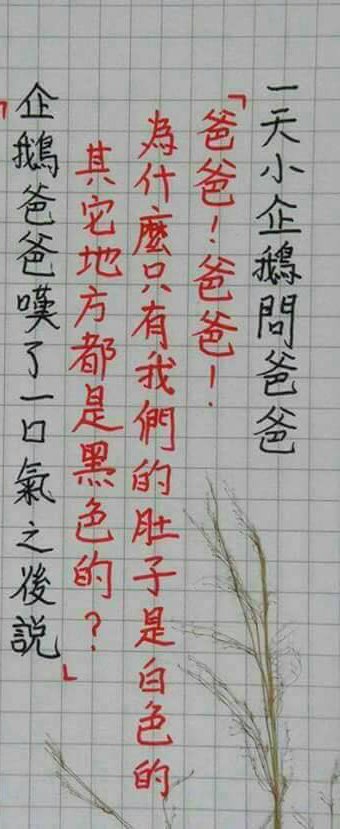 一天小企鵝問爸爸
「爸爸！爸爸！
為什麼只有我們的肚子是白色的
其它地方都是黑色的？」
企鵝爸爸嘆了一口氣之後説
「